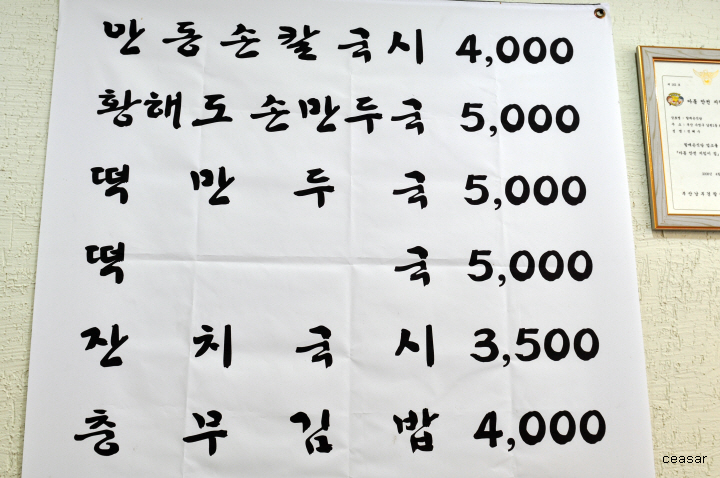 안동손칼국시 4,000
황해도손만두국 5,000
떡만두국 5,000
떡국 5,000
잔치국시 3,500
충무김밥 4,000
ceasar